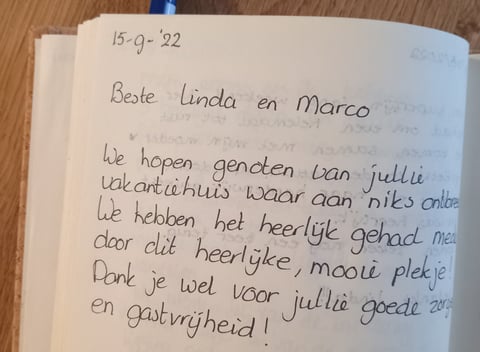 15-9-'22
Beste Linda en Marco
We hopen genoten van jullie
vakantiehuis waar aan niks
We hebben het heerlijk gehad
door dit heerlijke, mooie plekje!
Dank je wel voor jullie goede
en gastvrijheid!